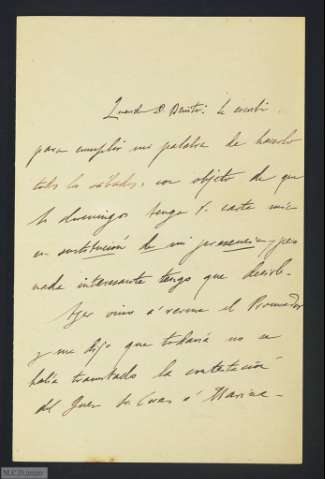 Querido D. Benito: Le escribo
para cumplir mi palabra de hacerlo
todos los sábados, con objeto de que
los domingos tenga V. carta mia
en sustitución de mi presencia, y pero
nada interesante tengo que decirle.
Ayer vino á verme el Procurador
y me dijo que todavia no se
habia tramitado la contestación
del Juez de Casas á Marina